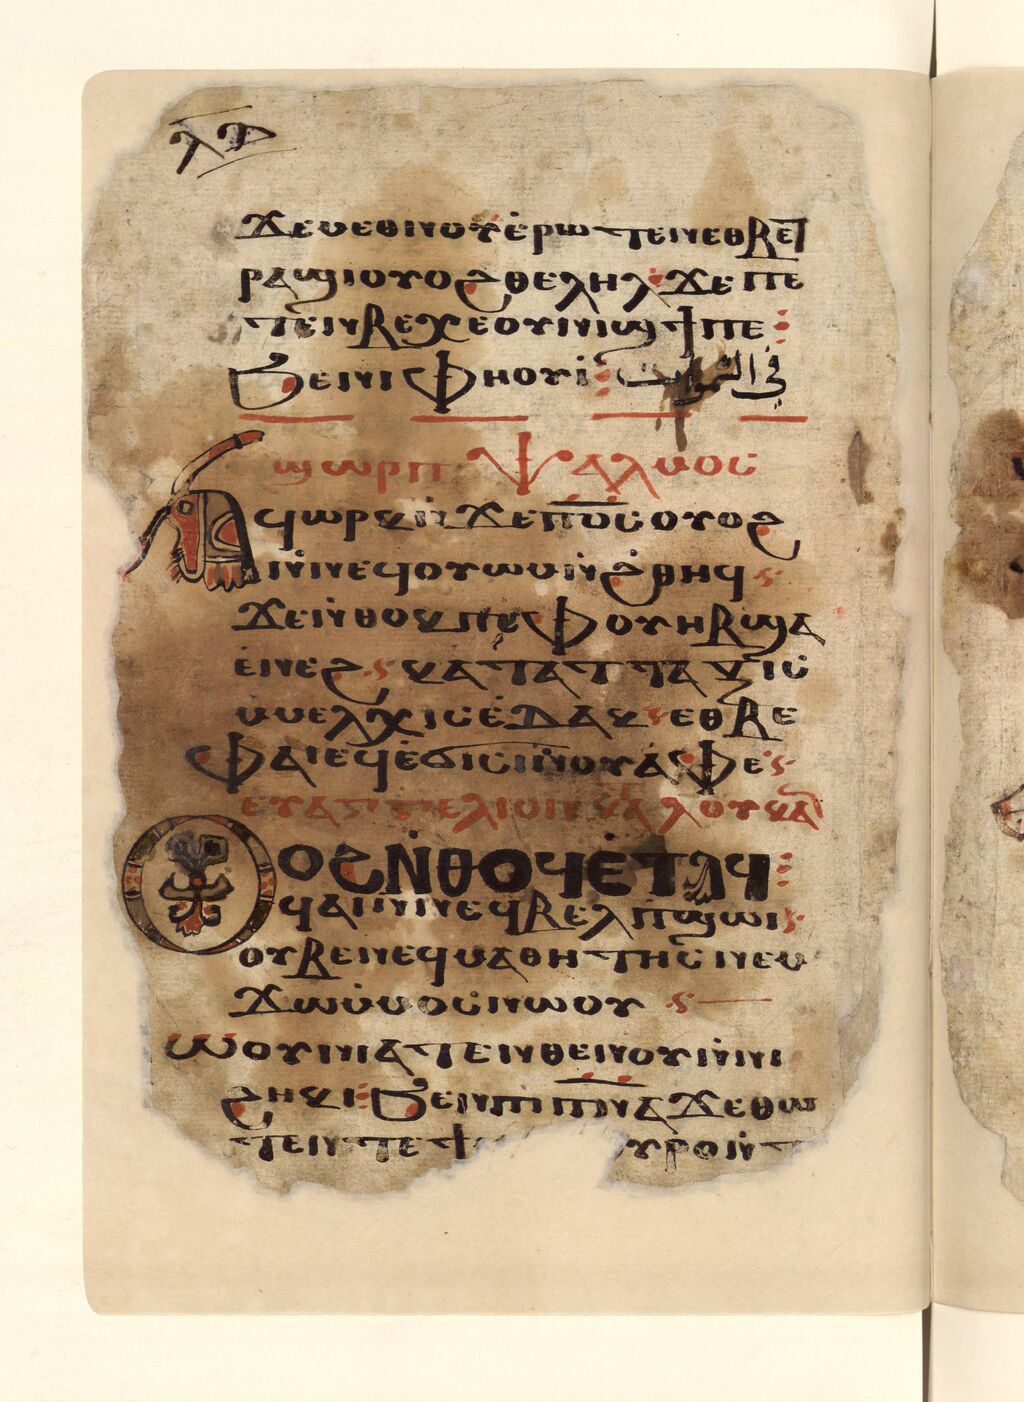 ⲗⲇ
ϫⲉⲙⲉⲑⲛⲟⲩϫ ⲉ̀ⲣⲱⲧⲉⲛ ⲉⲑⲃⲉⲧ
ⲣⲁϣⲓ ⲟⲩⲟϩ ⲑⲉⲗⲏⲗ ϫⲉ ⲡⲉ
ⲧⲉⲛⲃⲉⲭⲉ ⲟⲩⲛⲓϣϯ ⲡⲉ
ϧⲉⲛ ⲛⲓⲫⲏⲟⲩⲓ̀ في السموات
ϣⲱⲣⲡ ⲯⲁⲗⲙⲟⲥ
ⲁϥⲱⲣⲕ ⲛ̀ϫⲉ ⲡ̅ⲟ̅ⲥ̅ ⲟⲩⲟϩ
ⲛ̀ⲛⲉϥⲟⲩⲱⲙ ⲛ̀ϩⲑⲏϥ
ϫⲉ ⲛ̀ⲑⲟⲕ ⲡⲉ ⲫⲟⲩⲏⲃ ϣⲁ
ⲉ̀ⲛⲉϩ ⲕⲁⲧⲁ ⲧⲧⲁⲝⲓⲥ
ⲙ̀ⲙⲉⲗⲭⲓⲥⲉ̀ⲇⲁⲕ ⲉⲑⲃⲉ
ⲫⲁⲓ ⲉϥⲉ̀ϭⲓⲥⲓ ⲛ̀ⲟⲩⲁ̀ⲫⲉ
ⲉⲩⲁⲅⲅⲉⲗⲓⲟⲛ ⲕⲁ ⲗⲟⲩⲕⲁ
ⲟⲩⲟϩ ⲛ̀ⲑⲟϥ ⲉ̀ⲧⲁϥ
ϥⲁⲓ ⲛ̀ⲛⲉϥⲃⲉⲗ ⲡ̀ϣⲱⲓ
ⲟⲩⲃⲉ ⲛⲉϥⲙⲁⲑⲏⲧⲏⲥ ⲛⲉⲙ
ϫⲱ ⲙ̀ⲙⲟⲥ ⲛⲱⲟⲩ
ⲱⲟⲩⲛⲓⲁⲧⲉⲛⲑⲏⲛⲟⲩ ⲛ̀ⲛⲓ
ϩⲏⲕⲓ ϧⲉⲛ ⲡⲓⲡ̅ⲛ̅ⲁ̅ ϫⲉ ⲑⲱ
ⲧⲉⲛ ⲧⲉ ϯⲙⲉⲧⲟⲩⲣⲟ ⲛ̀ⲧ